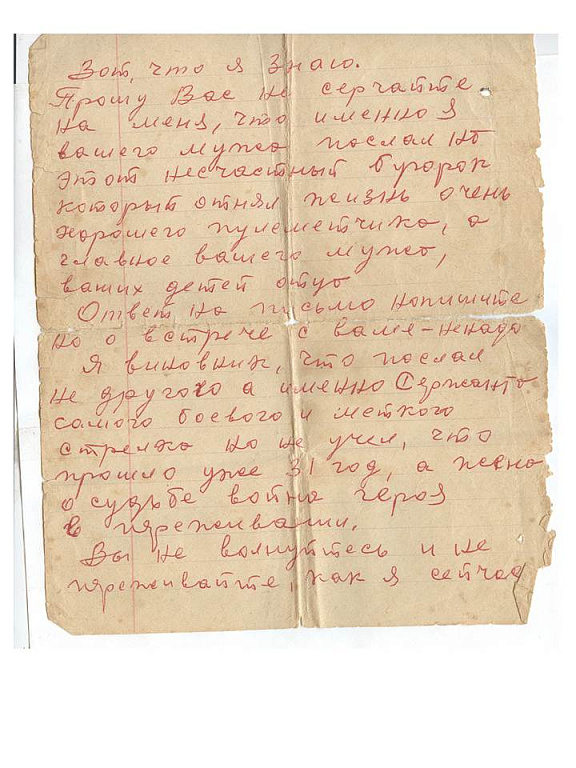 Вот, что я знаю.
Прошу Вас не серчайте
на меня, что именно я
вашего мужа послал на
этот несчастный бугорок
который отнял жизнь очень
хорошего пулеметчика, а
главное вашего мужа,
ваших детей отца
Ответ на письмо напишите
но о встрече с вами - ненадо
я виновник, что послал
не другого а именно Сержанта
самого боевого и меткого
стрелка но не учел, что
прошло уже 31 год, а жена
о судьбе война героя
в пяреживании.
Вы не волнуйтесь и не
пяреживайте, как я сейчас